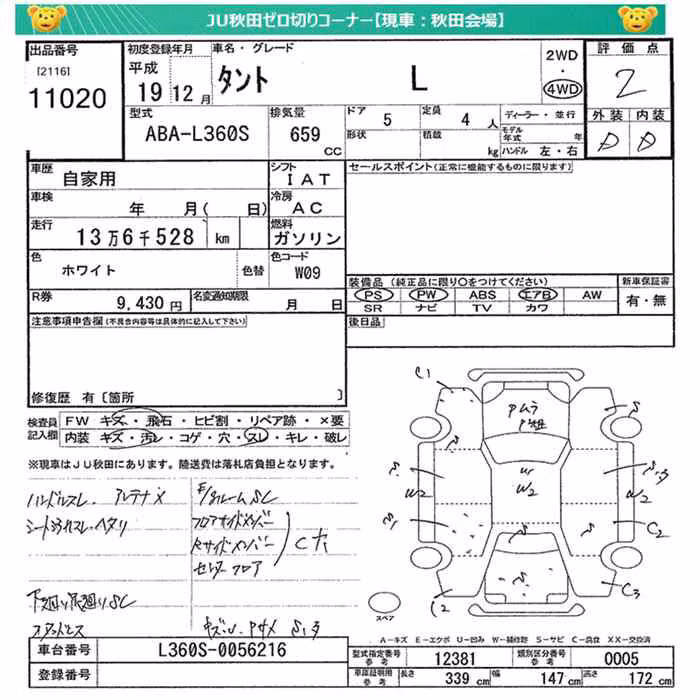 JU秋田ゼロ切りコーナー【現車：秋田会場】
出品番号
[2116]
11020
初度登録年月
平成
19 12月
車名・グレード
タント L
2WD
・
4WD
評価点
2
型式
ABA-L360S
排気量
659
CC
ドア
5
定員
4 人
形状
積載
kg
ディーラー・並行
モデル年式 年
ハンドル 左・右
外装 内装
D D
車歴
自家用
シフト
IAT
セールスポイント(正常に機能するものに限ります)
車検
年 月( 日)
冷房
AC
走行
13万6千528 km
燃料
ガソリン
色
ホワイト
色替
色コード
W09
R券
9,430円
名変通知期限
月 日
装備品 (純正品に限り○をつけてください)
PS PW ABS エアB AW
SR ナビ TV カワ
新車保証書
有・無
注意事項申告欄(不具合内容等は具体的に記入して下さい)
後日品
修復歴 有〔箇所 〕
検査員記入欄
FW キズ・飛石・ヒビ割・リペア跡・×要
内装 キズ・汚レ・コゲ・穴・スレ・キレ・破レ
※現車はJU秋田にあります。陸送費は落札店負担となります。
ハンドルスレ アンテナX
フロアサイドメンバー
Rサイドメンバー
センターフロア
C大
下回り
C1
W2
W2
W2
C2
C2
C3
スペア
A-キズ E-エクボ U-凹み W-補修跡 S-サビ C-腐食 XX-交換済
車台番号
L360S-0056216
登録番号
型式指定番号
参考
12381
類別区分番号
参考
0005
車庫証明用
参考
長さ
339 cm
幅
147 cm
高さ
172 cm